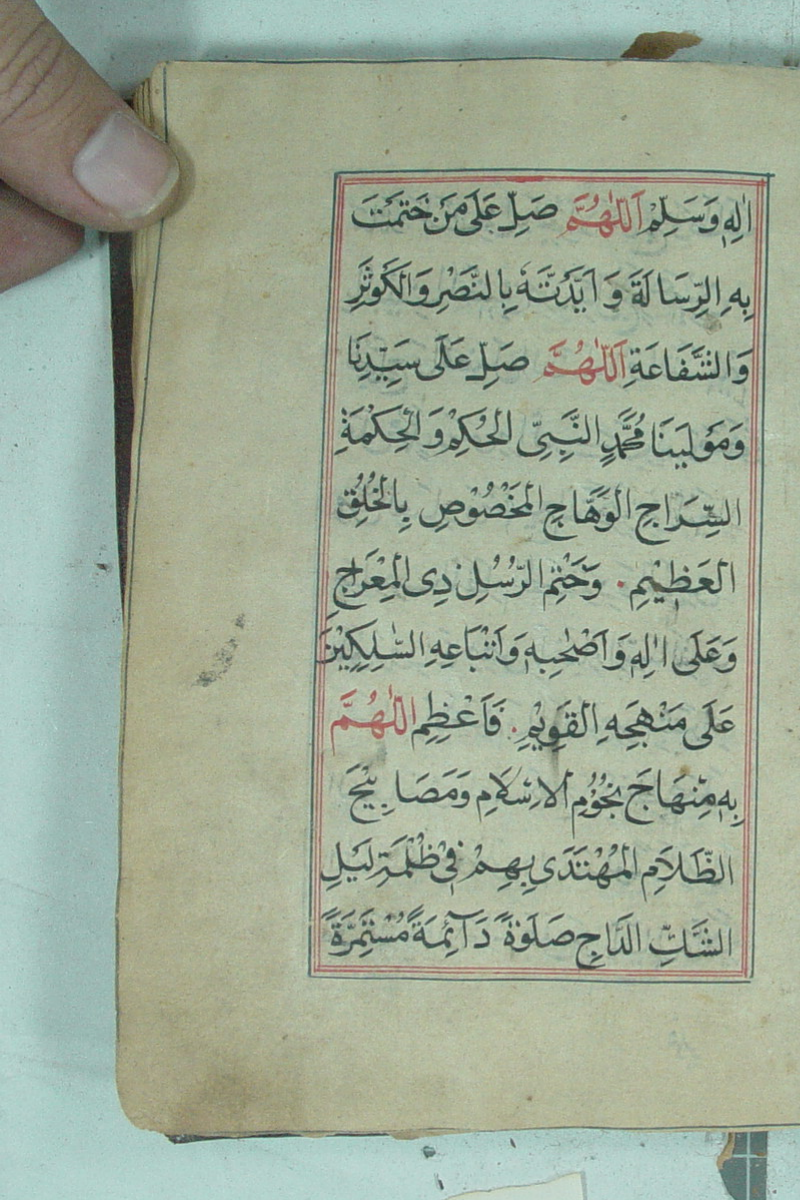 اٰلِهٖ وَسَلِّمْ اَللّٰهُمَّ صَلِّ عَلَى مَنْ خَتَمْتَ
بِهِ الرِّسَالَةَ وَاَيَّدْتَهُ بِالنَّصْرِ وَالْكَوْثَرِ
وَالشَّفَاعَةِ اَللّٰهُمَّ صَلِّ عَلَى سَيِّدِنَا
وَمَوْلَيٰنَا مُحَمَّدٍ النَّبِيِّ الْحُكْمِ وَالْحِكْمَةِ
السِّرَاجِ الْوَهَّاجِ الْمَخْصُوْصِ بِالْخُلُقِ
الْعَظِيْمِ. وَخَتْمِ الرُّسُلِ ذِى الْمِعْرَاجِ
وَعَلَى اٰلِهٖ وَاَصْحٰبِهٖ وَاَتْبَاعِهِ السّٰلِكِيْنَ
عَلَى مَنْهَجِهِ الْقَوِيْمِ. فَاَعْظِمِ اللّٰهُمَّ
بِهٖ مِنْهَاجَ نُجُوْمِ الْاِسْلَامِ وَمَصَابِيْحَ
الظَّلَامِ الْمُهْتَدَى بِهِمْ فِيْ ظُلْمَةِ لَيْلِ
الشَّكِّ الدَّاجِ صَلٰوةً دَآئِمَةً مُسْتَمِرَّةً